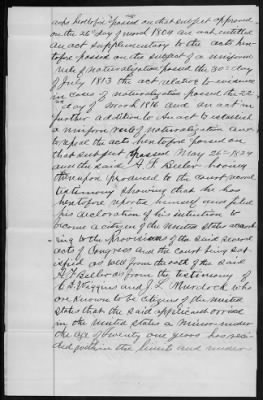 acts heretofore passed on that subject approved
on the 26th day of March 1804 an act entitled
an act supplementary to the acts heretofore
passed on the subject of a uniform
rule of naturalization passed the 30th day
of July 1813 the act relative to evidence
in cases of naturalization passed the 22nd
day of March 1816 and an act in
further addition to an act to establish
a uniform rule of naturalization and
to repeal the act heretofore passed on
that subject passed May 26-1824
and the said having
thereupon produced to the court record
testimony showing that he has
heretofore reported himself and filed
his declaration of his intention to
become a citizen of the United States according
to the provisions of the said several
acts of Congress and the court being satisfied
as well from the oath of the said
as from the testimony of
C. A. Wiggins and J. L. Murdock who
are known to be citizens of the United
States that the said applicant arrived
in the United States a Minor under
the age of twenty one years has resided
within the limits and under